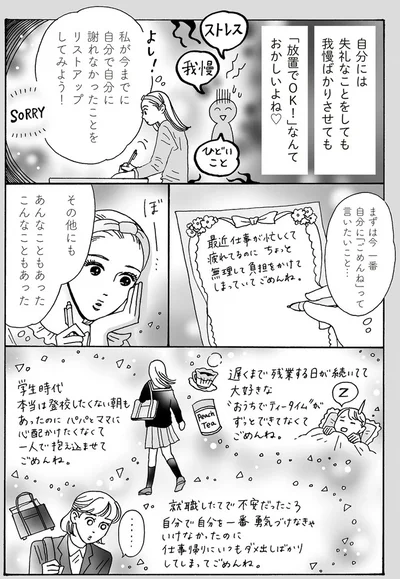 自分には
失礼なことをしても
我慢ばかりさせても
「放置でOK！」なんて
おかしいよね♡
ストレス
我慢
ひどい
こと
よし！
私が今までに
自分で自分に
謝れなかったことを
リストアップ
してみよう！
SORRY
まずは今一番
自分に「ごめんね」って
言いたいこと…
最近仕事が忙しくて
疲れてるのに ちょっと
無理して負担をかけて
しまっていてごめんね。
ぼ
その他にも
あんなこともあった
こんなこともあった
遅くまで残業する日が続いてて
大好きな
“おうちでティータイム”が
ずっとできてなくて
ごめんね。
Peach
Tea
Z
学生時代
本当は登校したくない朝も
あったのに パパとママに
心配かけたくなくて
一人で抱え込ませて
ごめんね。
就職したてで不安だったころ
自分で自分を一番 勇気づけなきゃ
いけなかったのに
仕事帰りにいつもダメ出しばかり
してしまってごめんね。
……